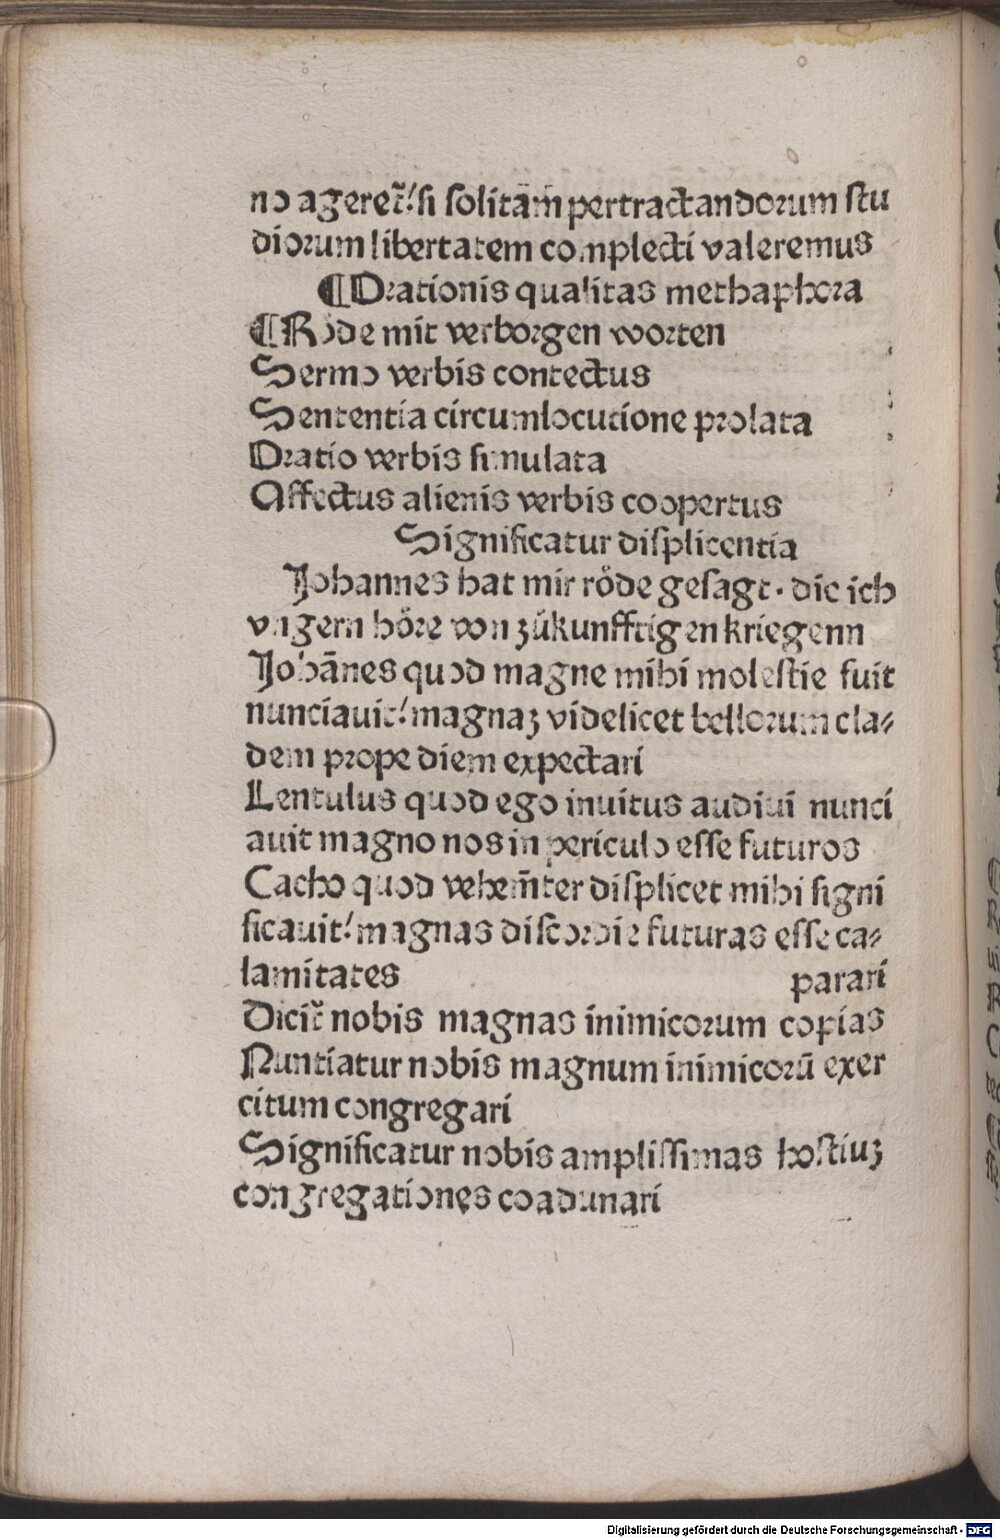 no ageret᷑/ si solitam̄ pertractandorum stu
diorum libertatem complecti valeremus
¶Orationis qualitas methaphora
¶Röde mit verborgen worten
Sermo verbis contectus
Sententia circumlocutione prolata
Oratio verbis simulata
Affectus alienis verbis coopertus
Significatur displicentia
Johannes hat mir röde gesagt· die ich
vngern höre von zůkunfftigen kriegenn
Johānes quod magne mihi molestie fuit
nunciauit/ magnaꝫ videlicet bellorum cla⸗
dem prope diem expectari
Lentulus quod ego inuitus audiui nunci
auit magno nos in periculo esse futuros
Cacho quod vehem̄ter displicet mihi signi
ficauit/ magnas discordie futuras esse ca⸗
lamitates parari
Dicit᷑ nobis magnas inimicorum copias
Nuntiatur nobis magnum inimicorū exer
citum congregari
Significatur nobis amplissimas hostiuꝫ
congregationes coadunari
Digitalisierung gefördert durch die Deutsche Forschungsgemeinschaft - DFG